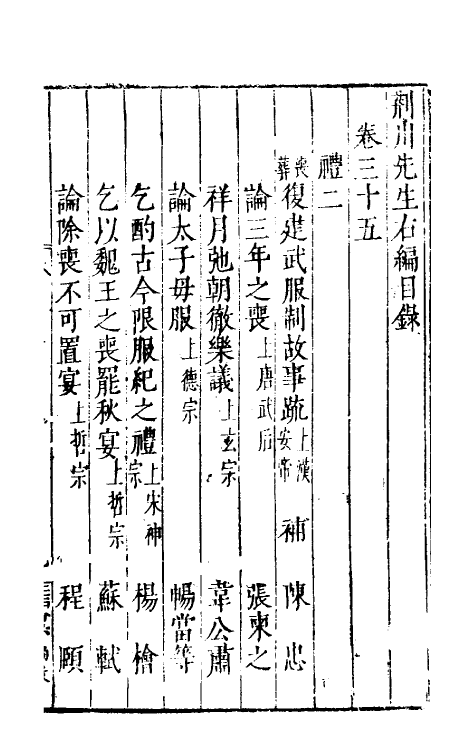 荆川先生右編目錄
卷三十五
禮二
喪葬 復建武服制故事疏 上漢安帝 補 陳忠
論三年之喪 上唐武后 張柬之
祥月弛朝徹樂議 上玄宗 韋公肅
論太子母服 上德宗 暢當等
乞酌古今限服紀之禮 上宋神宗 楊檜
乞以魏王之喪罷秋宴 上哲宗 蘇軾
論除喪不可置宴 上哲宗 程頤